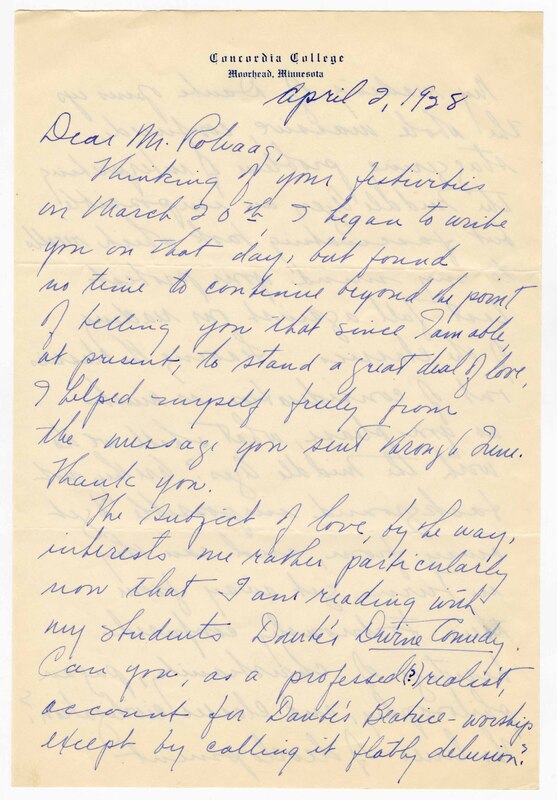 Concordia College
Moorhead, Minnesota
April 2, 1928
Dear Mr. Rolvaag,
Thinking of your festivities
on March 20th, I began to write
you on that day, but found
no time to continue beyond the point
of telling you that since I am able,
at present, to stand a great deal of love,
I helped myself freely from
the message you sent through
Thank you.
The subject of love, by the way,
interests me rather particularly
now that I am reading with
my students Dante's Divine Comedy.
Can you, as a professed (?) realist,
account for Dante's Beatrice-worship
except by calling it flabby delusion?